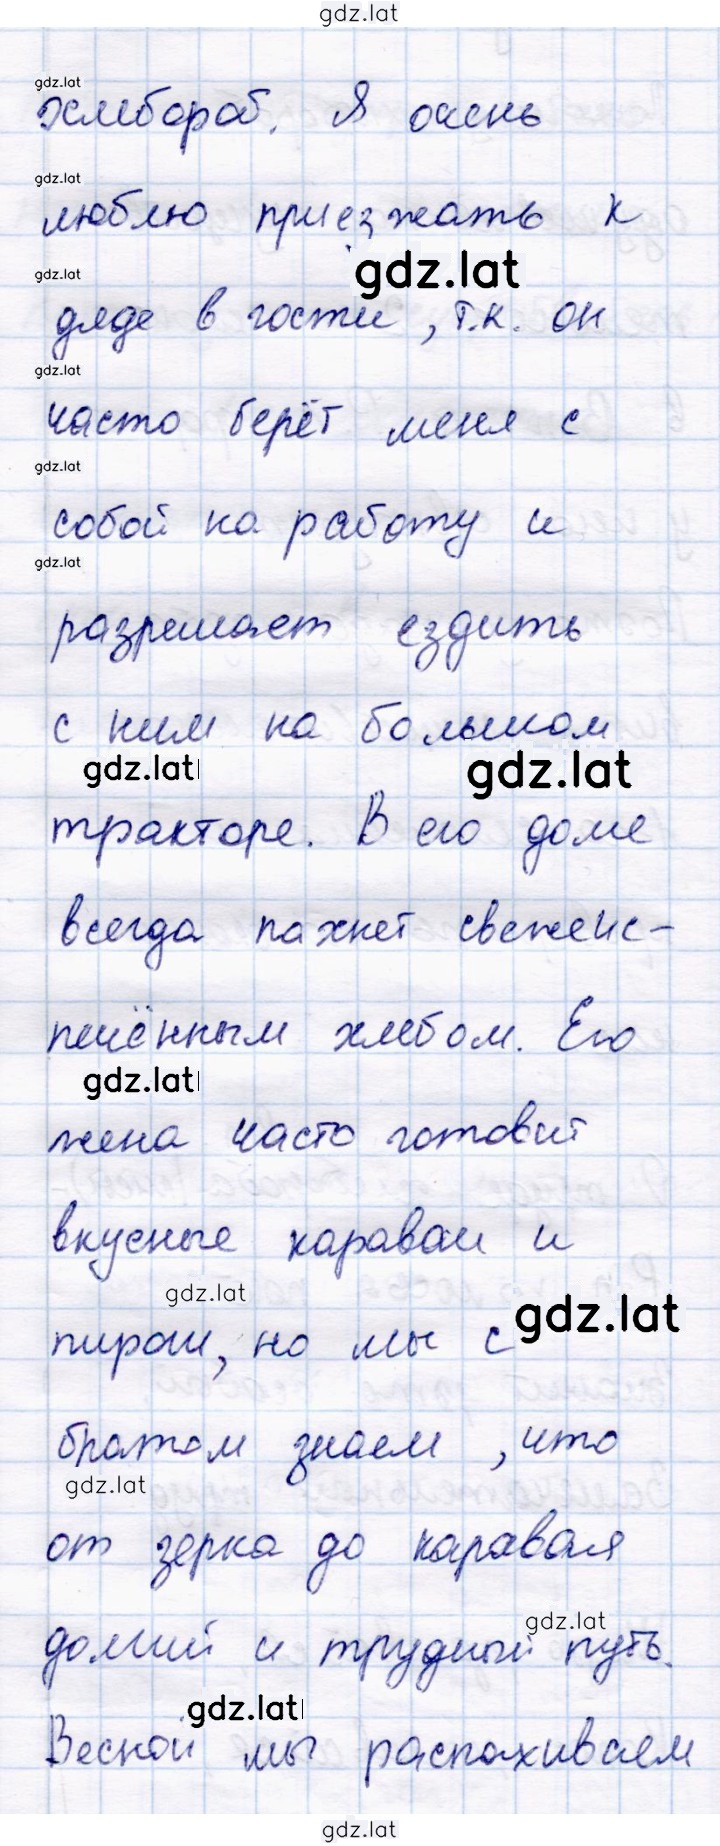 gdz.lat
gdz.lat
хлебороб. Я очень
gdz.lat
люблю приезжать к
gdz.lat
gdz.lat
дяде в гости, т.к. он
gdz.lat
часто берёт меня с
gdz.lat
собой на работу и
gdz.lat
разрешает ездить
с ним на большом
gdz.lat gdz.lat
тракторе. В его доме
всегда пахнет свежеис-
печённым хлебом. Его
gdz.lat
жена часто готовит
вкусные караваи и
gdz.lat gdz.lat
пироги, но мы с
братом знаем, что
gdz.lat
от зерка до каравая
gdz.lat
долгий и трудный путь.
gdz.lat
Весной мы распахиваем
gdz.lat